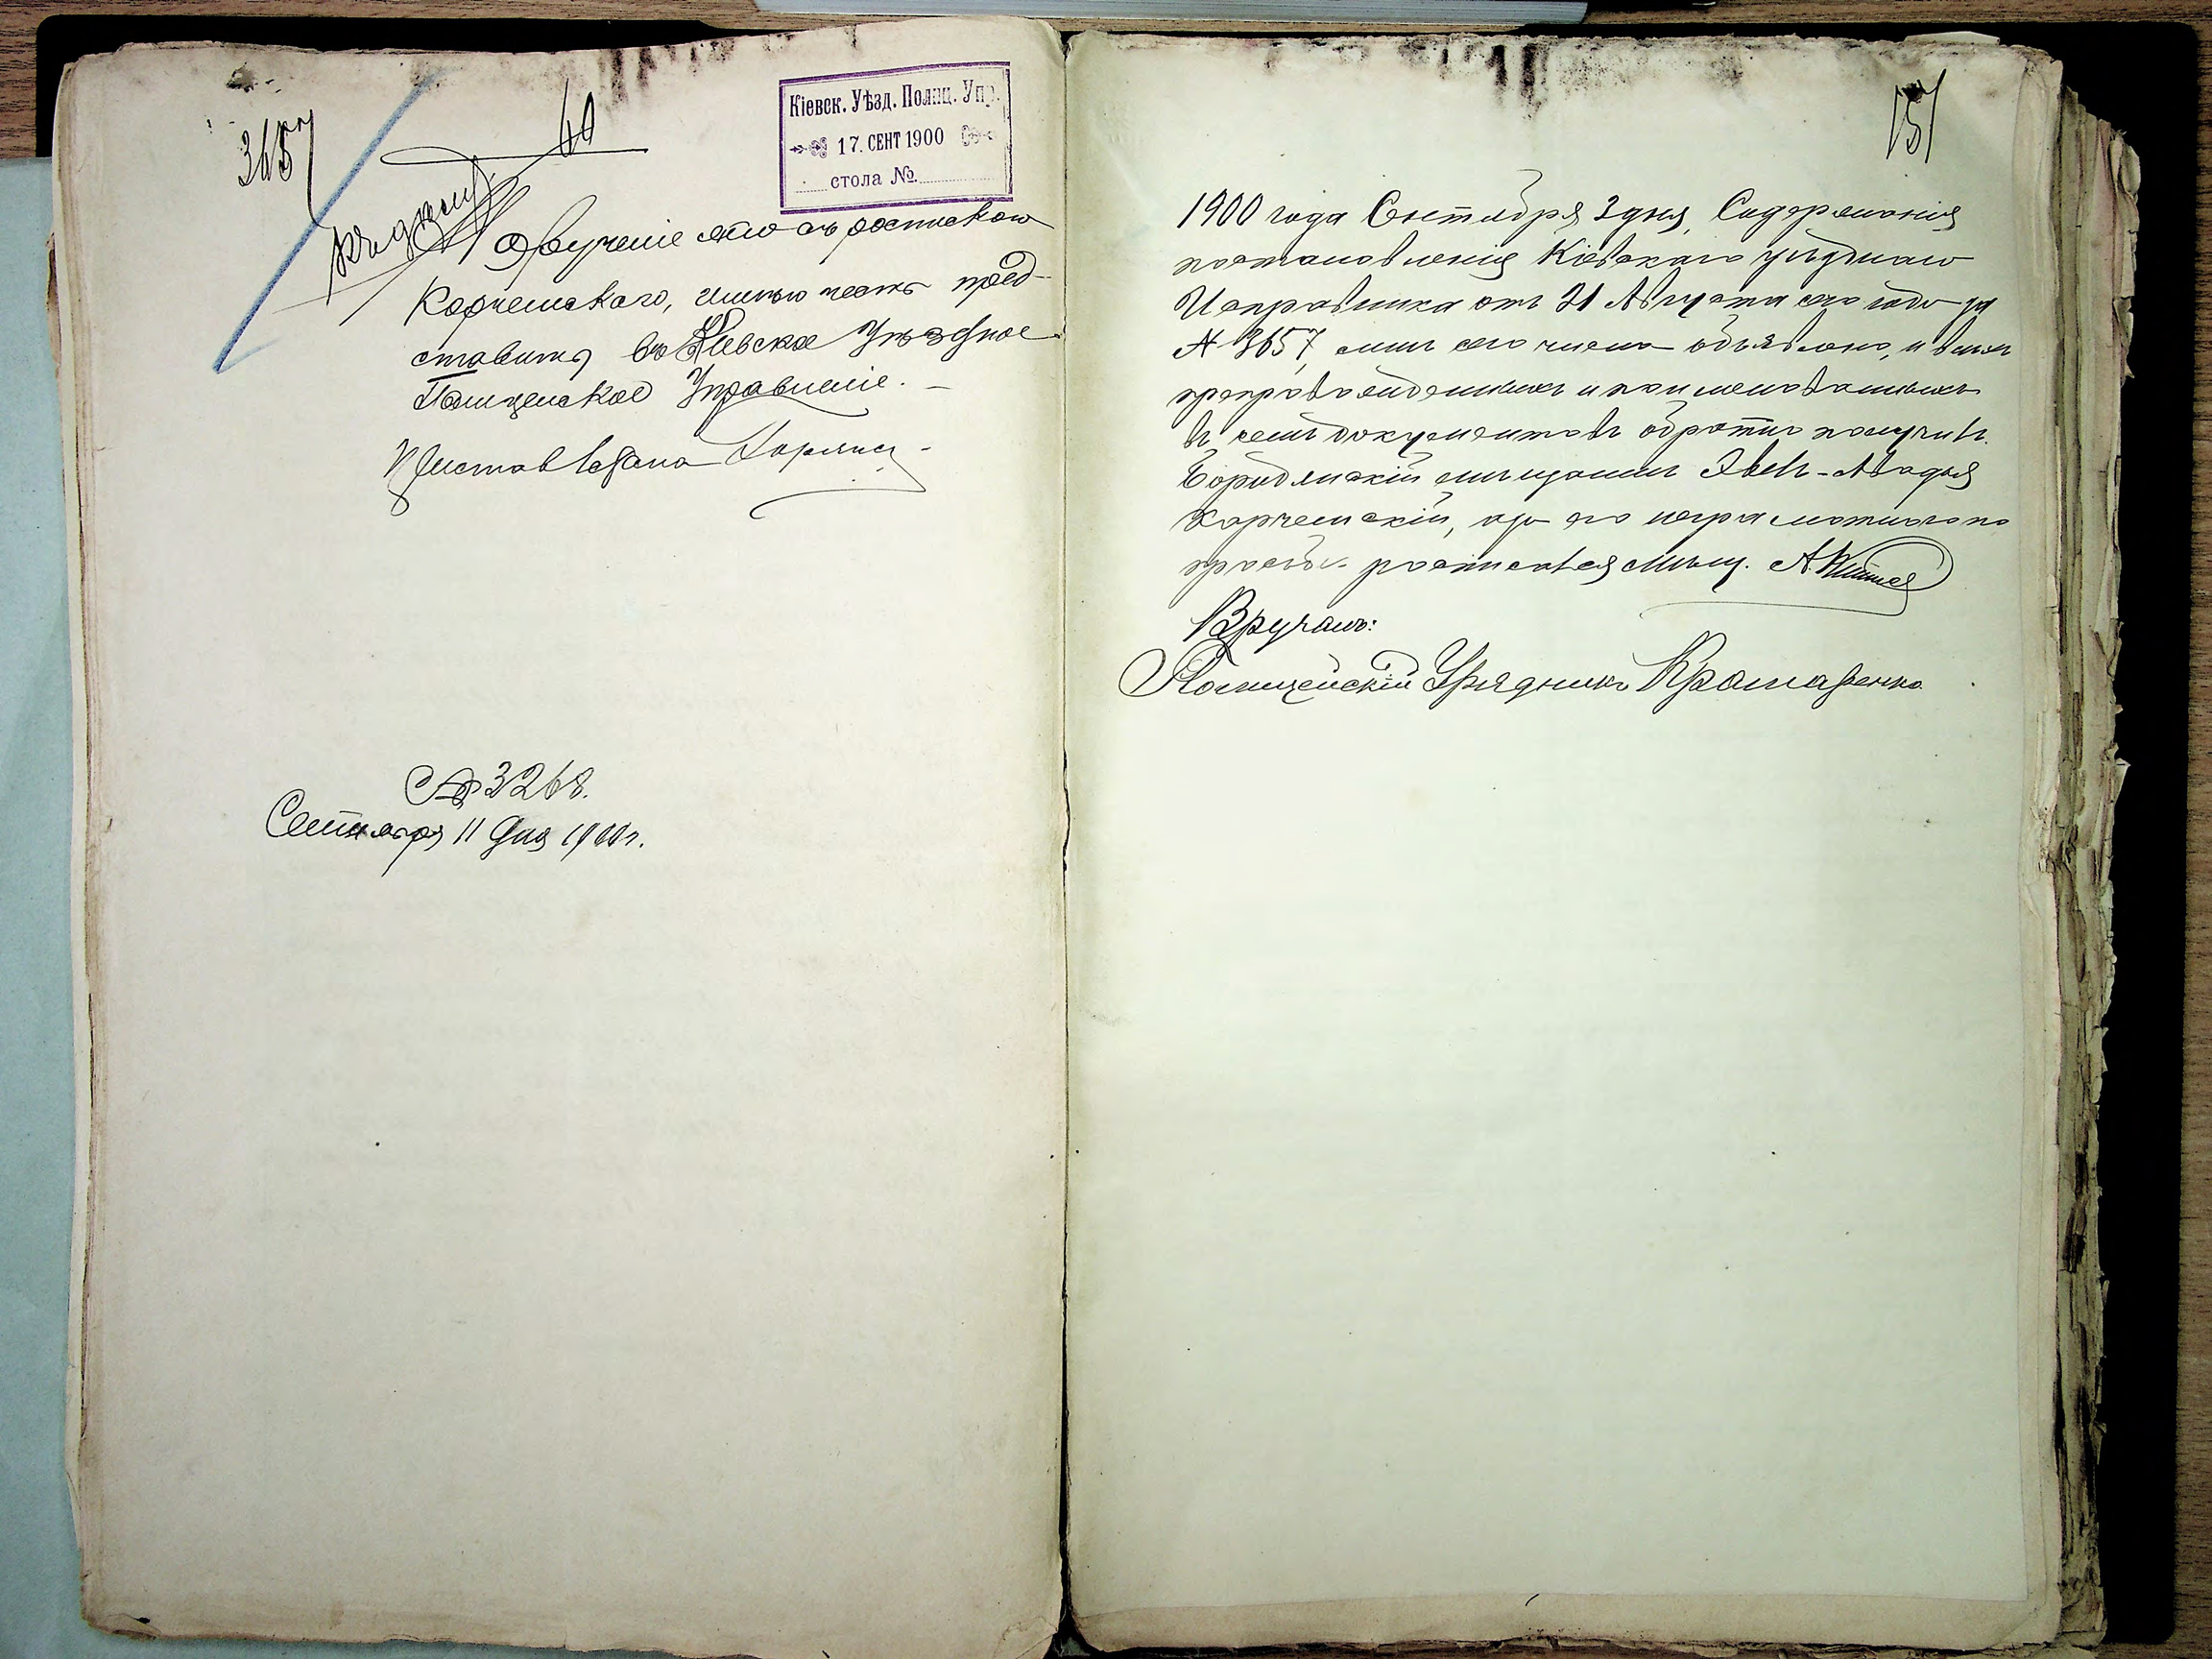 3657
60
къ дѣлу
Кіевск. Уѣзд. Полиц. Упр.
17. СЕНТ 1900
стола №
Порученіе это съ роспискою
Корчемскаго, имѣю честь пред-
ставить въ Кіевское Уѣздное
Полицейское Управленіе. —
Приставъ Стана
№ 3268.
Сентября 11 дня 1900 г.
157
1900 года Сентября 3 дня, Содержаніе
постановленія Кіевскаго уѣзднаго
Исправника отъ 21 Августа сего года за
№ 3657, мнѣ сего числа объявлено, и
препровожденныхъ и поименованныхъ
въ семъ документовъ обратно получилъ.
Бородянскій мѣщанинъ
Корчемскій, а за его неграмотного по
просьбѣ росписался мѣщ. А.
Вручилъ:
Полицейскій Урядникъ Крамаренко